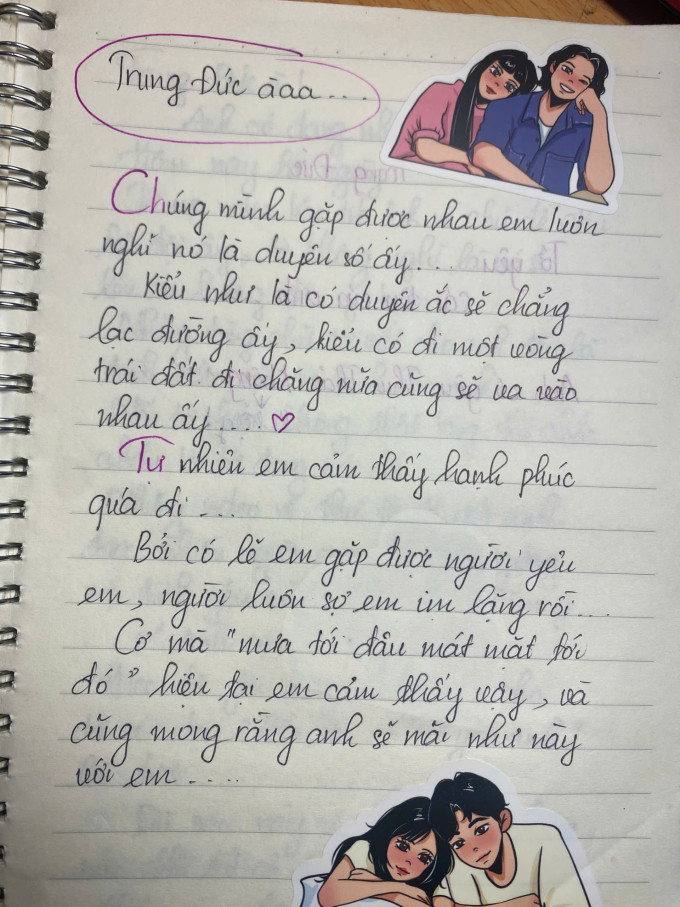 Trung Đức àaa....
Chúng mình gặp được nhau em luôn
nghĩ nó là duyên số ấy...
Kiểu như là có duyên ắc sẽ chẳng
lạc đường ấy, kiểu có đi một vòng
trái đất đi chăng nữa cũng sẽ va vào
nhau ấy.... ♡
Tự nhiên em cảm thấy hạnh phúc
quá đi...
Bởi có lẽ em gặp được người yêu
em, người luôn sợ em im lặng rồi...
Cơ mà "mưa tới đâu mát mặt tới
đó" hiện tại em cảm thấy vậy, và
cũng mong rằng anh sẽ mãi như này
với em....